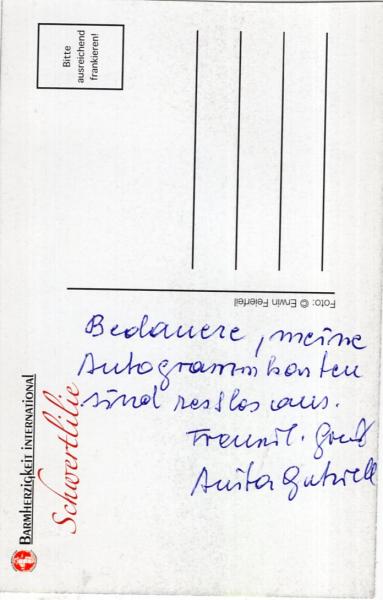 Bitte
ausreichend
frankieren!
Foto: © Erwin Feierteil
BARMHERZIGKEIT INTERNATIONAL
Schwertlilie
Bedauere, meine
Autogrammkarten
sind restlos aus.
Freundl. Gruß
Anita Gutwell